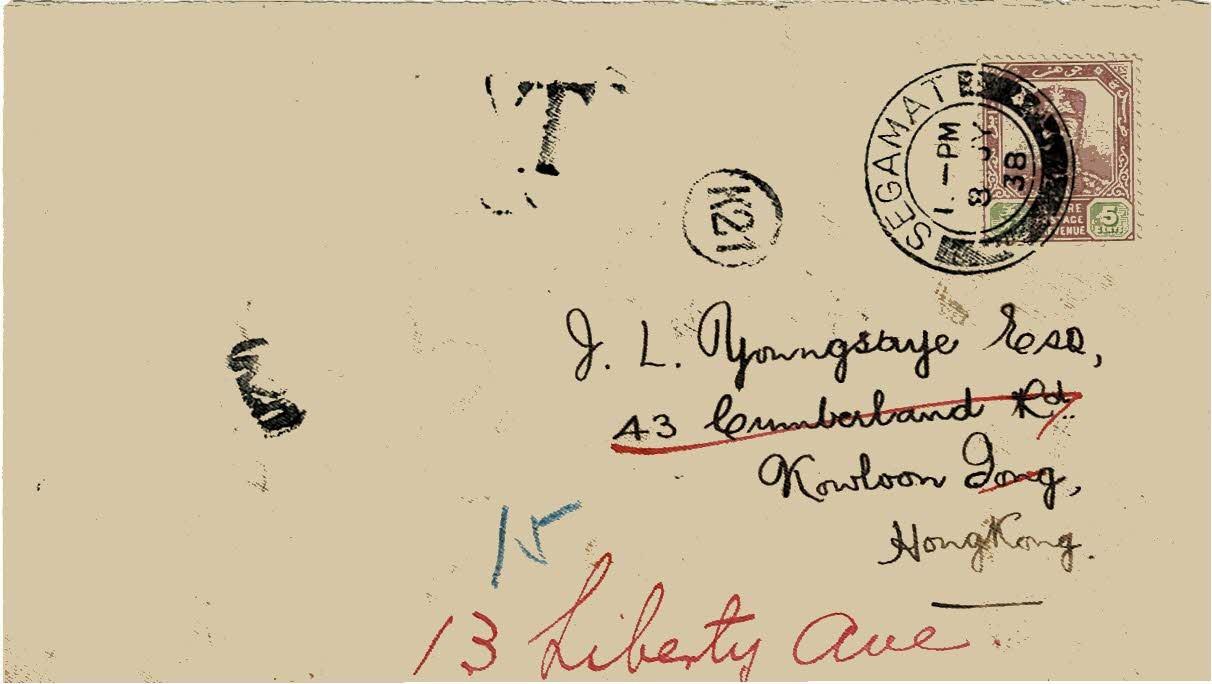 T
SEGAMAT
1.—PM
8 JY
38
5
K21
J. L. Youngsaye Esq,
43 Cumberland Rd.
Kowloon Tong,
HongKong.
15
13 Liberty Ave.